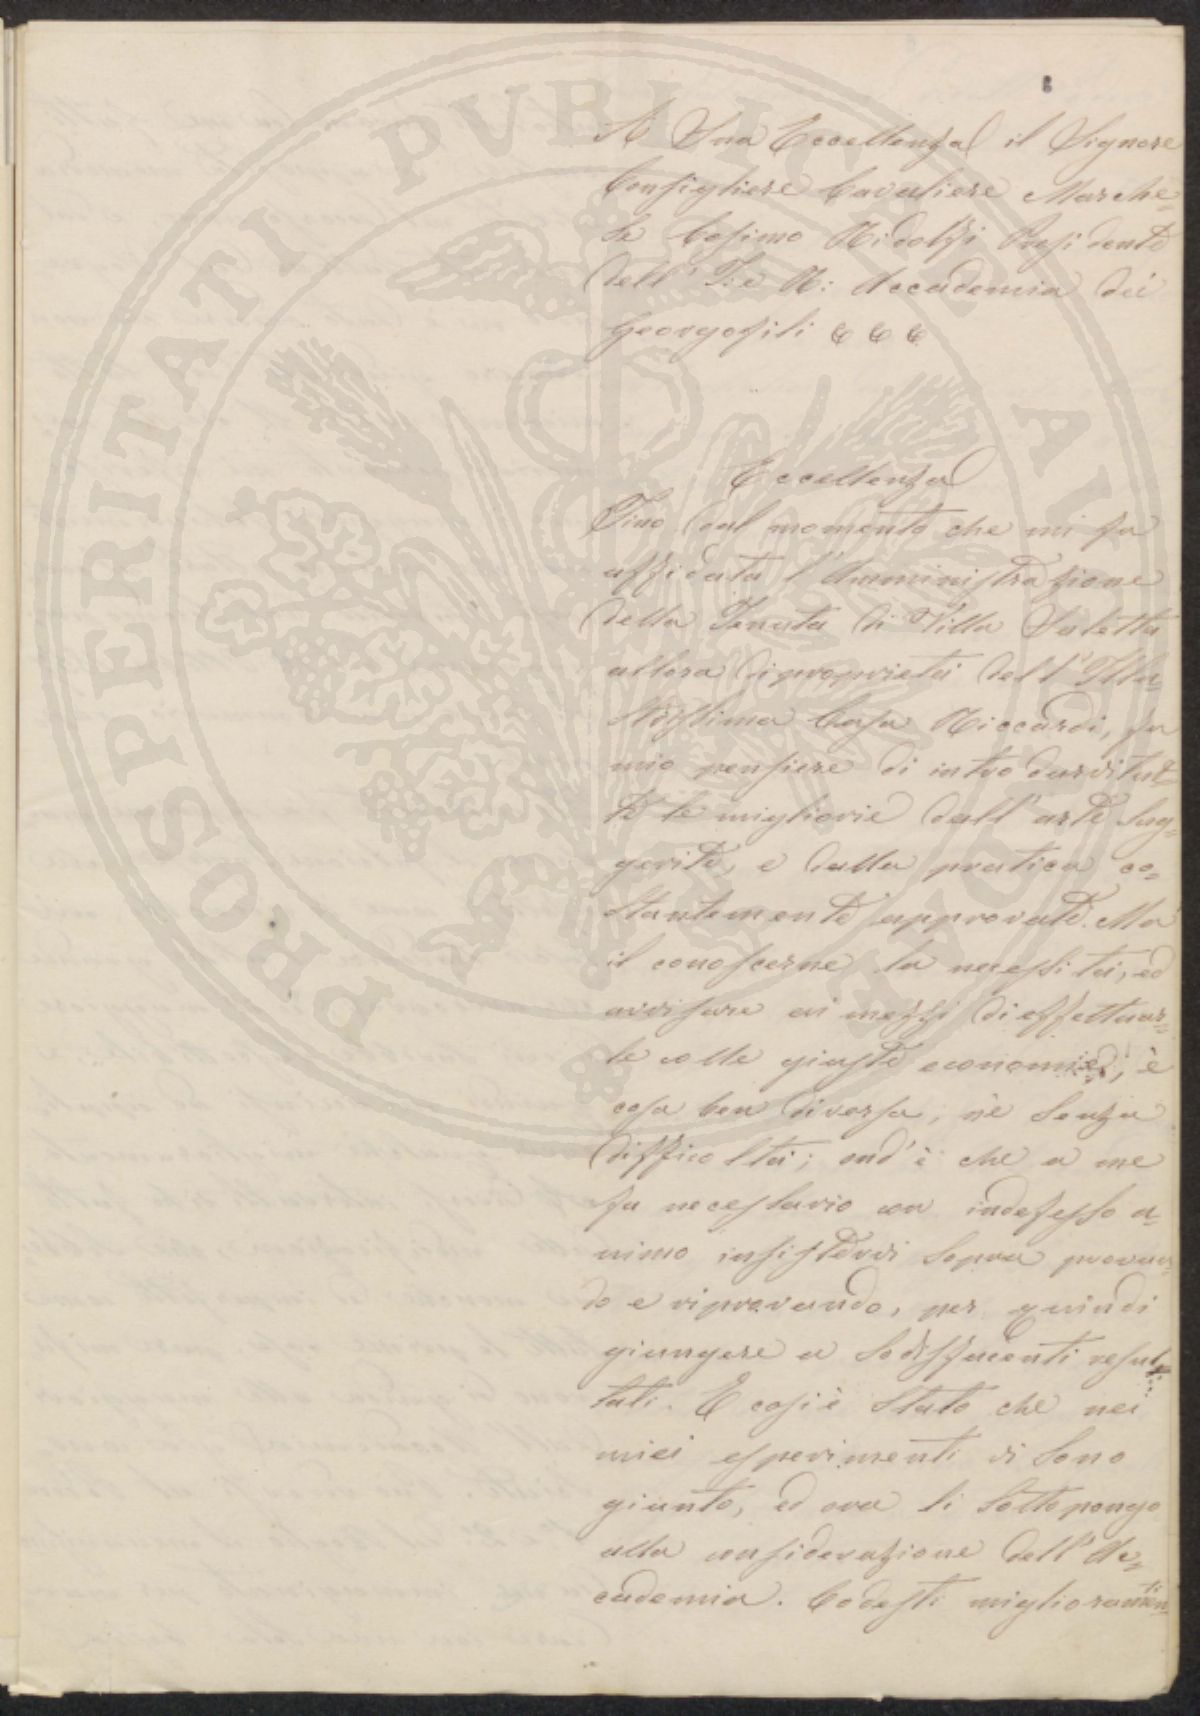 A Sua Eccellenza il Signore
Consigliere Cavaliere Marche=
se Cosimo Ridolfi Presidente
dell' I: e R: Accademia dei
Georgofili &c &c &c
Eccellenza
Fino dal momento che mi fu
affidata l'Amministrazione
della Tenuta di Villa Saletta
allora di proprietà dell' Illu=
strissima Casa Riccardi, fu
mio pensiere di introdurvi tut=
te le migliorie dall'arte sug=
gerite, e dalla pratica co=
stantemente approvate. Ma
il conoscerne la necessità, ed
avvisare ai mezzi di effettuar=
le colle giuste economie, è
cosa ben diversa, nè senza
difficoltà; ond'è che a me
fu necessario con indefesso a=
nimo insistervi sopra provan=
do e riprovando, per quindi
giungere a sodisfacenti resul=
tati. E così è stato che nei
miei esperimenti vi sono
giunto, ed ora li sottopongo
alla considerazione dell'Ac=
cademia. Codesti miglioramen=
ti
PROSPERITATI PUBLICAE AUGENDAE